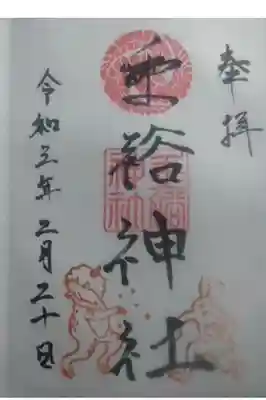 奉拝
垂裕神社
令和三年二月二十日